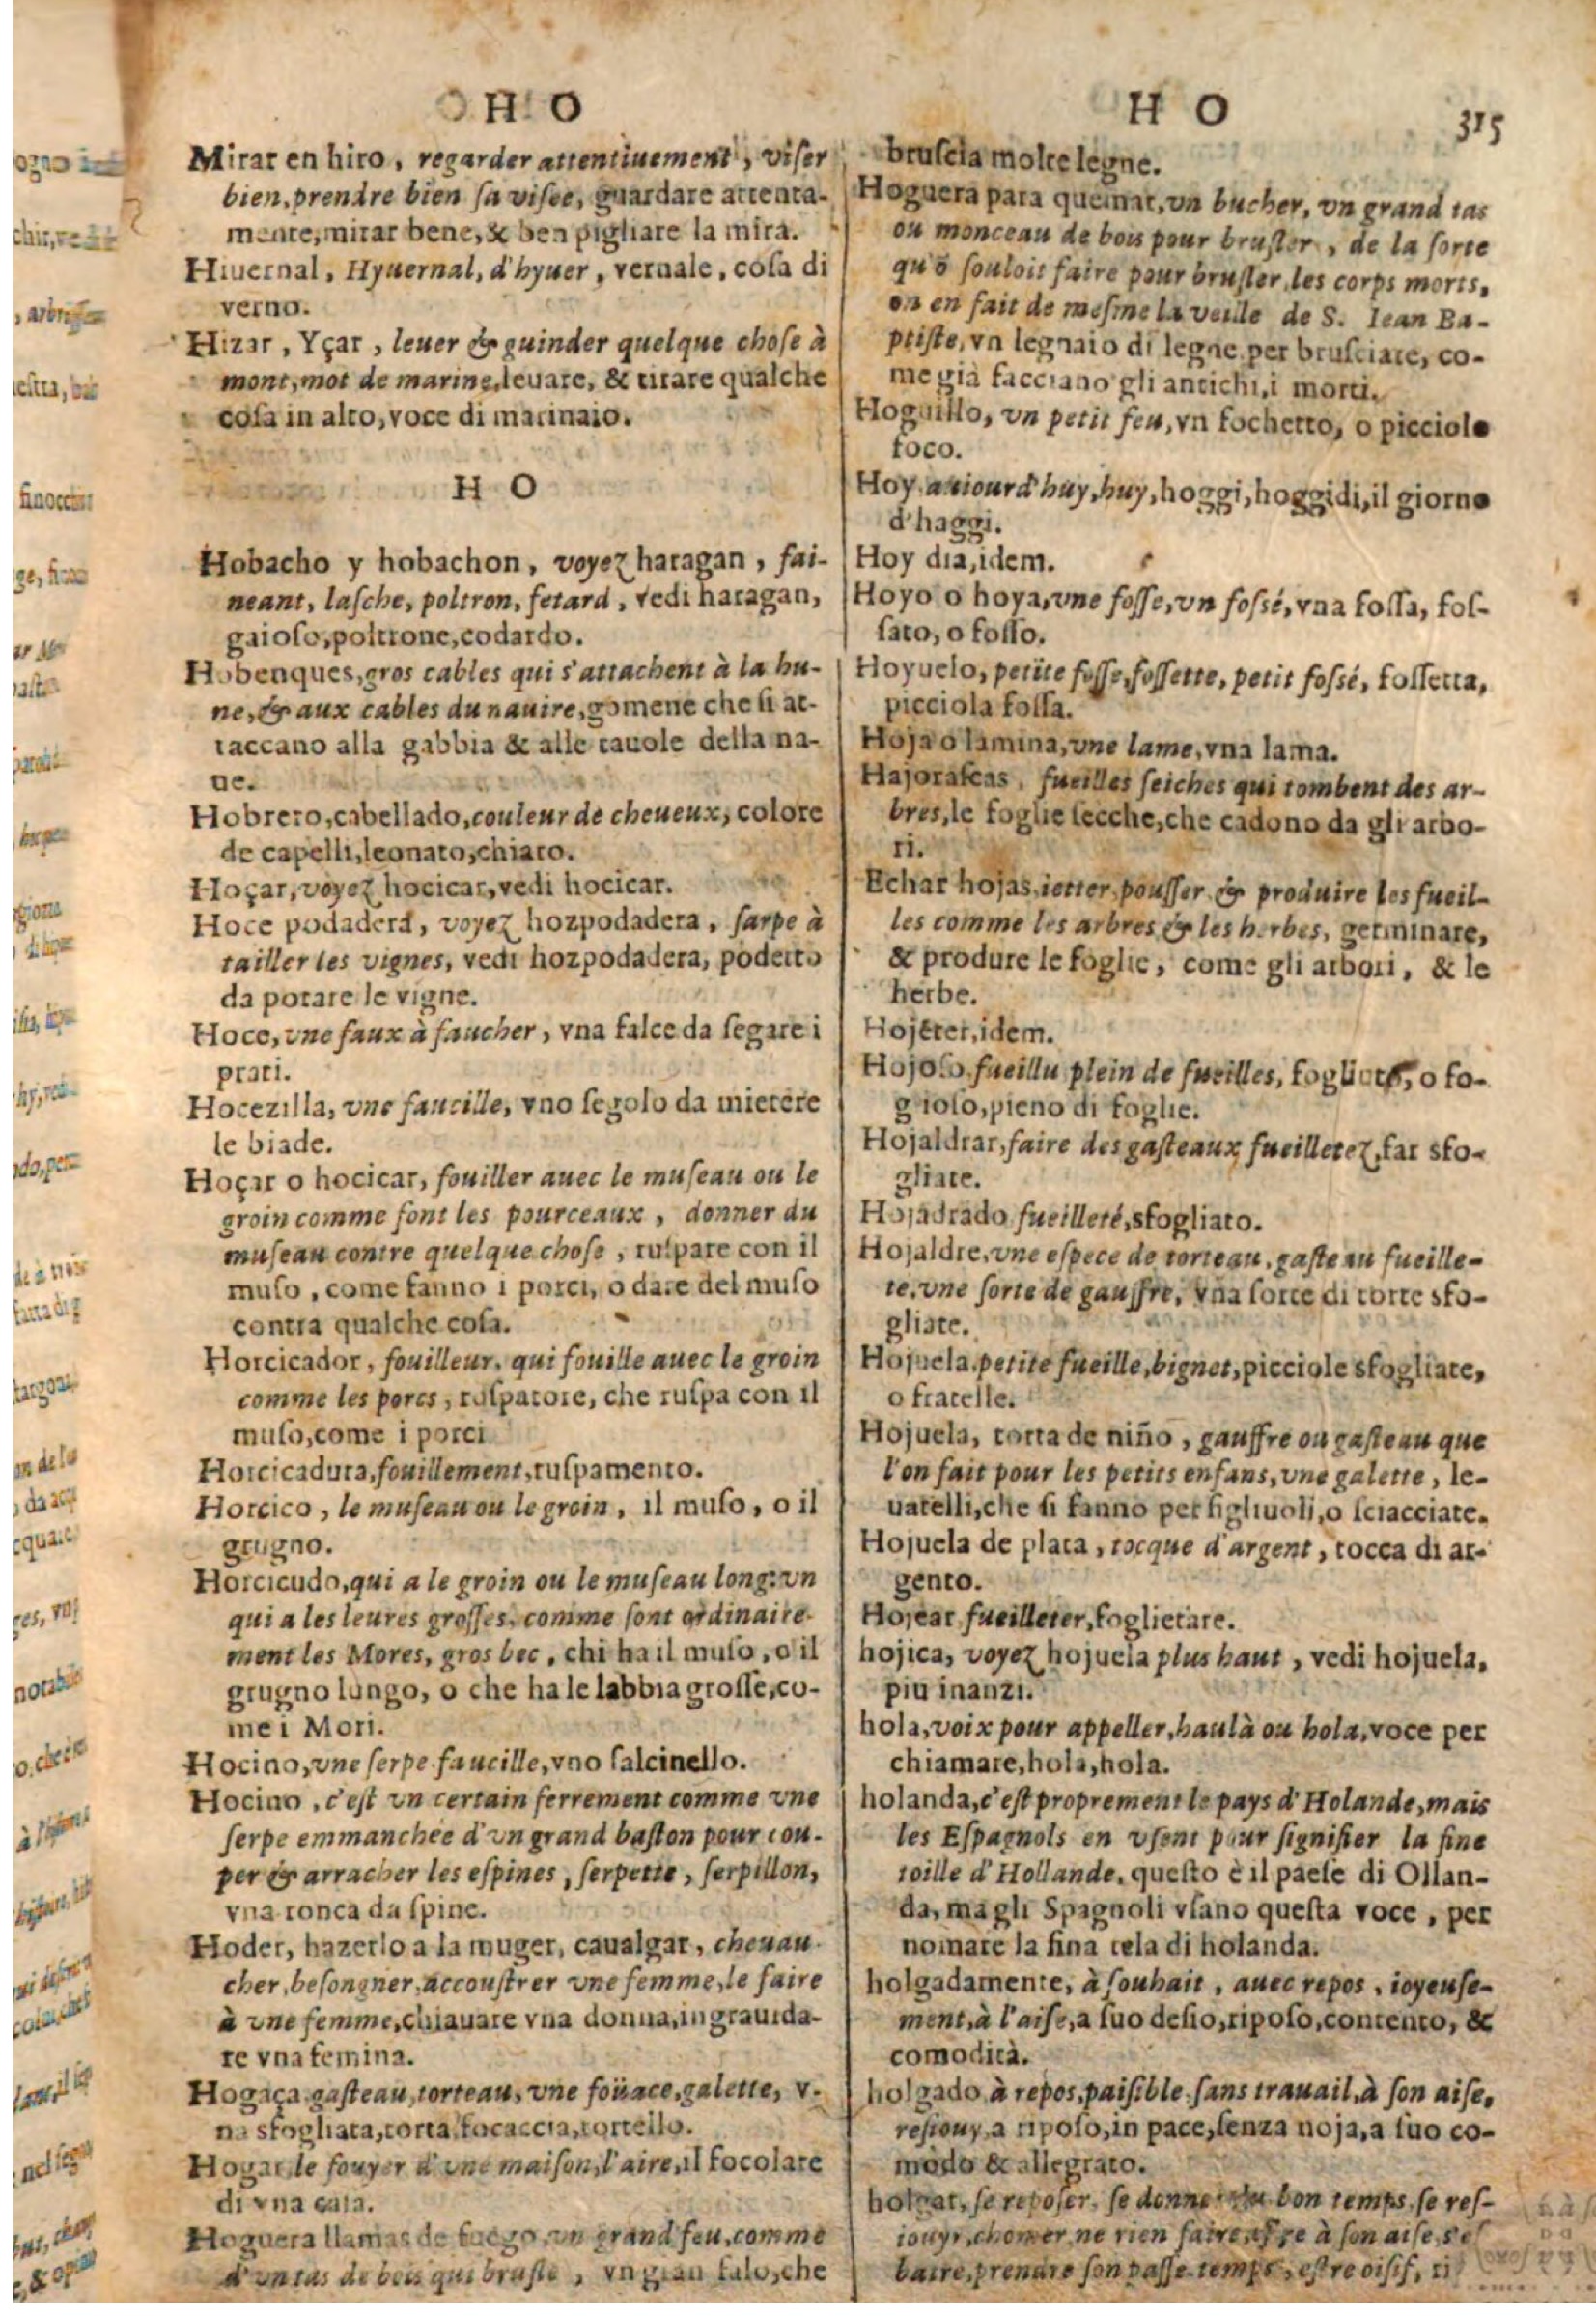 H O
Mirar en hiro, regarder attentiuement, viser
bien, prendre bien sa visee, guardare attenta-
mente, mirar bene, & ben pigliare la mira.
Hiuernal, Hyuernal, d'hyuer, vernale, cosa di
verno.
Hizar, Yçar, leuer & guinder quelque chose à
mont, mot de marine, leuare, & tirare qualche
cosa in alto, voce di marinaio.
H O
Hobacho y hobachon, voyez haragan, fai-
neant, lasche, poltron, fetard, vedi haragan,
gaioso, poltrone, codardo.
Hobenques, gros cables qui s'attachent à la hu-
ne, & aux cables du nauire, gomene che si at-
taccano alla gabbia & alle tauole della na-
ue.
Hobrero, cabellado, couleur de cheueux, colore
de capelli, leonato, chiaro.
Hoçar, voyez hocicar, vedi hocicar.
Hoce podadera, voyez hozpodadera, sarpe à
tailler les vignes, vedi hozpodadera, podetto
da potare le vigne.
Hoce, vne faux à faucher, vna falce da segare i
prati.
Hocezilla, vne faucille, vno segolo da mietere
le biade.
Hoçar o hocicar, fouiller auec le museau ou le
groin comme font les pourceaux, donner du
museau contre quelque chose, ruspare con il
muso, come fanno i porci, o dare del muso
contra qualche cosa.
Horcicador, fouilleur, qui fouille auec le groin
comme les porcs, ruspatore, che ruspa con il
muso, come i porci
Horcicadura, fouillement, ruspamento.
Horcico, le museau ou le groin, il muso, o il
grugno.
Horcicudo, qui a le groin ou le museau long: vn
qui a les leures grosses, comme sont ordinaire-
ment les Mores, gros bec, chi ha il muso, o il
grugno lungo, o che ha le labbia grosse, co-
me i Mori.
Hocino, vne serpe faucille, vno falcinello.
Hocino, c'est vn certain ferrement comme vne
serpe emmanchée d'vn grand baston pour cou-
per & arracher les espines, serpette, serpillon,
vna ronca da spine.
Hoder, hazerlo a la muger, caualgar, cheuau-
cher, besongner, accoustrer vne femme, le faire
à vne femme, chiauare vna donna, ingrauida-
re vna femina.
Hogaça gasteau, torteau, vne foüace, galette, v-
na sfogliata, torta focaccia, tortello.
Hogar le fouyer d'vne maison, l'aire, il focolare
di vna casa.
Hoguera llamas de fuego, vn grand feu, comme
d'vn tas de bois qui brusle, vn gran falo, che
H O 315
bruscia molte legne.
Hoguera para quemar, vn bucher, vn grand tas
ou monceau de bois pour brusler, de la sorte
qu'ō souloit faire pour brusler les corps morts,
on en fait de mesme la veille de S. Iean Ba-
ptiste, vn legnaio di legne per brusciare, co-
me già facciano gli antichi, i morti.
Hoguillo, vn petit feu, vn fochetto, o picciolo
foco.
Hoy auiourd'huy, huy, hoggi, hoggidi, il giorno
d'haggi.
Hoy dia, idem.
Hoyo o hoya, vne fosse, vn fossé, vna fossa, fos-
sato, o fosso.
Hoyuelo, petite fosse, fossette, petit fossé, fossetta,
picciola fossa.
Hoja o lamina, vne lame, vna lama.
Hajorascas, fueilles seiches qui tombent des ar-
bres, le foglie secche, che cadono da gli arbo-
ri.
Echar hojas, ietter, pousser & produire les fueil-
les comme les arbres & les herbes, germinare,
& produre le foglie, come gli arbori, & le
herbe.
Hojecer, idem.
Hojoso fueillu plein de fueilles, o fo-
g ioso, pieno di foglie.
Hojaldrar, faire des gasteaux fueilletez, far sfo-
gliate.
Hojadrado fueilleté, sfogliato.
Hojaldre, vne espece de torteau, gasteau fueille-
té, vne sorte de gauffre, vna sorte di torte sfo-
gliate.
Hojuela petite fueille, bignet, picciole sfogliate,
o fratelle.
Hojuela, torta de niño, gauffre ou gasteau que
l'on fait pour les petits enfans, vne galette, le-
uatelli, che si fanno per figliuoli, o sciacciate.
Hojuela de plata, tocque d'argent, tocca di ar-
gento.
Hojear fueilleter, foglietare.
hojica, voyez hojuela plus haut, vedi hojuela,
piu inanzi.
hola, voix pour appeller, haulà ou hola, voce per
chiamare, hola, hola.
holanda, c'est proprement le pays d'Holande, mais
les Espagnols en vsent pour signifier la fine
toille d'Hollande, questo è il paese di Ollan-
da, ma gli Spagnoli vsano questa voce, per
nomare la fina tela di holanda.
holgadamente, à souhait, auec repos, ioyeuse-
ment, à l'aise, a suo desio, riposo, contento, &
comodità.
holgado à repos, paisible sans trauail, à son aise,
resiouy a riposo, in pace, senza noja, a suo co-
modo & allegrato.
holgar, se reposer, se donner du bon temps, se res-
iouyr, chomer ne rien faire, estre à son aise, s'es
batre, prendre son passe-temps, estre oisif, ri